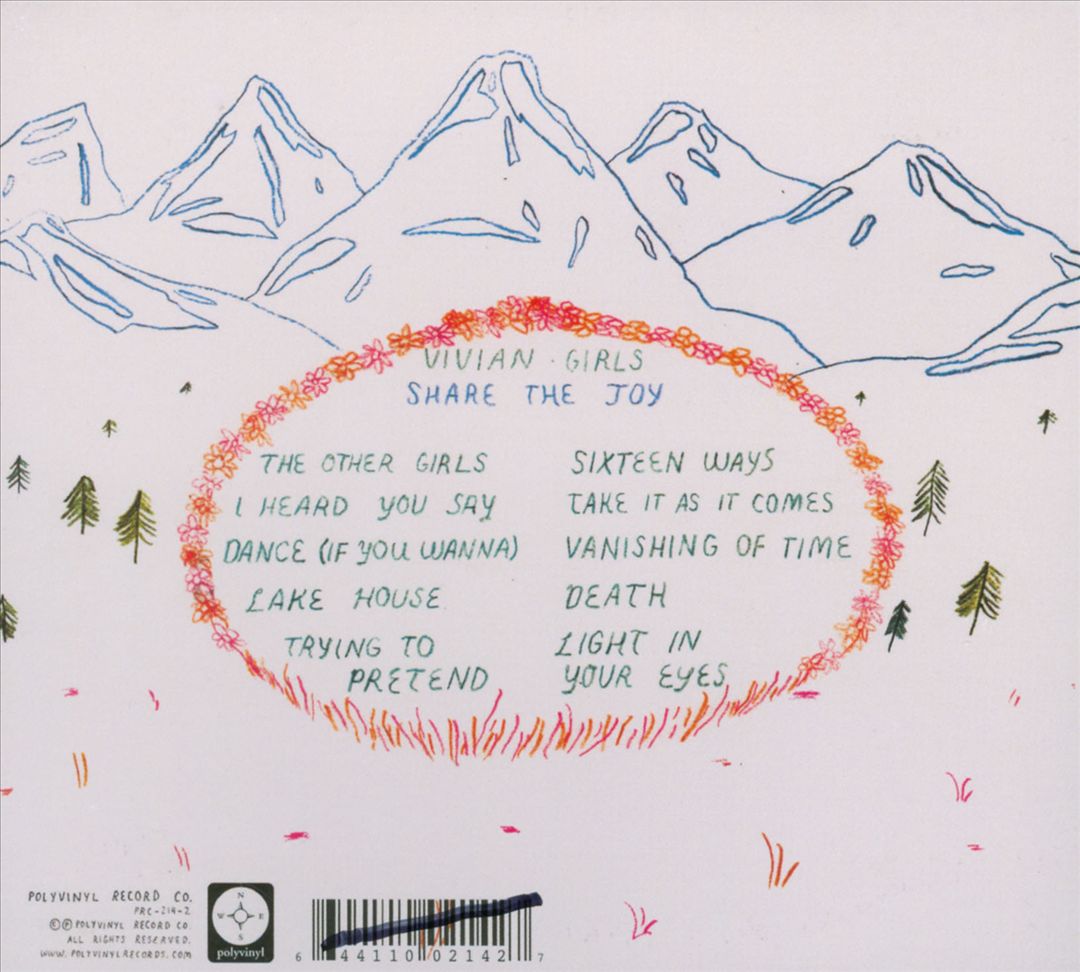 VIVIAN · GIRLS
SHARE THE JOY
THE OTHER GIRLS
I HEARD YOU SAY
DANCE (IF YOU WANNA)
LAKE HOUSE
TRYING TO
PRETEND
SIXTEEN WAYS
TAKE IT AS IT COMES
VANISHING OF TIME
DEATH
LIGHT IN
YOUR EYES
POLYVINYL RECORD CO.
PRC-214-2
©℗ POLYVINYL RECORD CO.
ALL RIGHTS RESERVED.
WWW. POLYVINYLRECORDS.COM
N
W E
S
polyvinyl
6 44110 02142 7